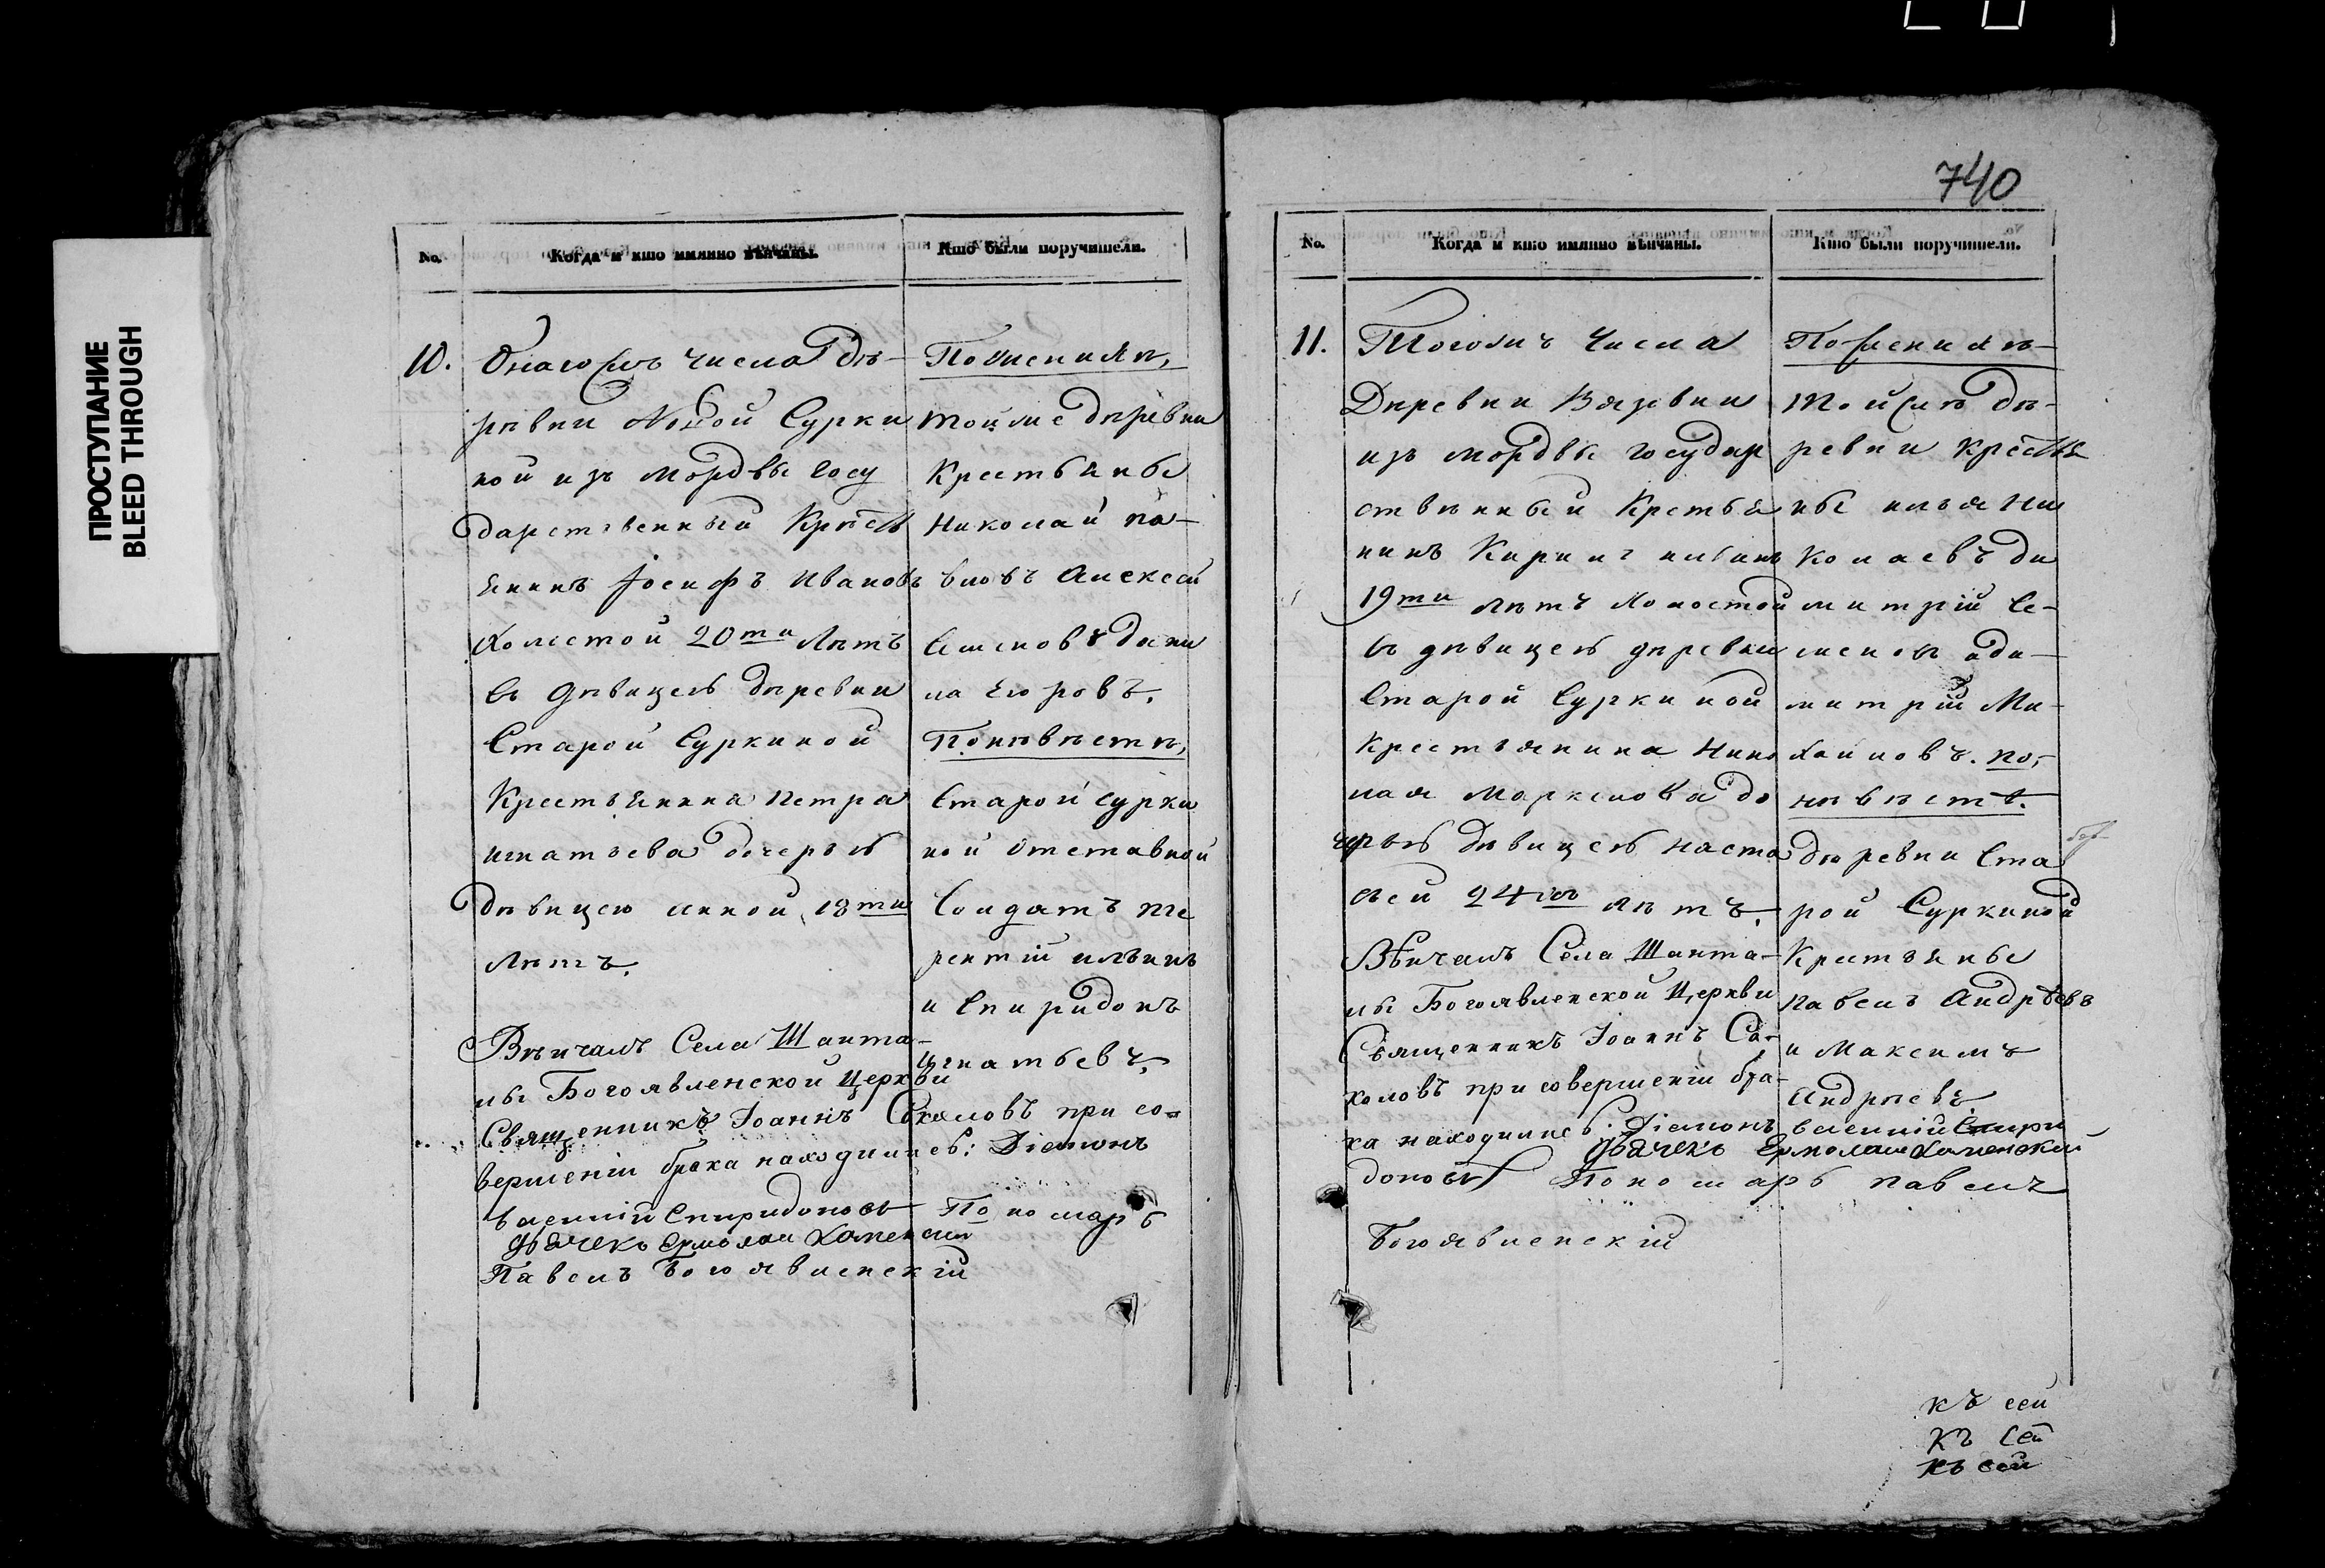 740
ПРОСТУПАНИЕ
BLEED THROUGH
No.
Когда и кто имянно вѣнчаны.
Кто были поручители.
10.
Онагожъ числа де-
ревни Новой Сурки
ной изъ мордвы госу
дарственный Крестъ
янинъ Іосифъ Ивановъ
Холостой 20ти лѣтъ
Съ дѣвицею деревни
Старой Суркиной
Крестьянина Петра
игнатьева дочерью
дѣвицею анной 18ти
лѣтъ.
Вѣнчалъ Села Шанта-
лы Богоявленской Церкви
Священникъ Іоаннъ Соколовъ при со-
вершеніи брака находились: Діаконъ
василій Спиридоновъ Пономарь
дьячекъ Ермолаи Каменскій
Павелъ Богоявленскій
По женихѣ,
тойже деревни
Крестьяне
Николай па-
вловъ алексей
Семеновъ дани
ла Егоровъ.
По невѣстѣ,
Старой Сурки
ной отставной
Солдатъ те
рентій ильинъ
и Спиридонъ
игнатьевъ,
No.
Когда и кто имянно вѣнчаны.
Кто были поручители.
11.
Тогожъ числа
Деревни Вязовки
изъ мордвы государ
ственный Крестья
нинъ
19ти лѣтъ Холостой
съ дѣвицею деревни
Старой Суркиной
Крестьянина Нико
лая марксловадо
черью дѣвицею наста
сьей 24хъ лѣтъ.
Вѣнчалъ Села Шанта-
лы Богоявленской Церкви
Священникъ Іоаннъ Со-
коловъ при совершеніи бра-
ка находились: Діаконъ василій Спири
дьячекъ Ермолаи Каменский
доновъ Пономарь павелъ
Богоявленскій
По женихѣ
тойже де-
ревни крестья
не илья Ни
колаевъ ди
митрій Се-
меновъ ади-
митрій Ми-
хайловъ. по,-
невѣстѣ.
деревни Ста
рой Суркиной
Крестьяне
павелъ андрѣевъ
и максимъ
андреевъ
къ сей
къ сей
къ сей